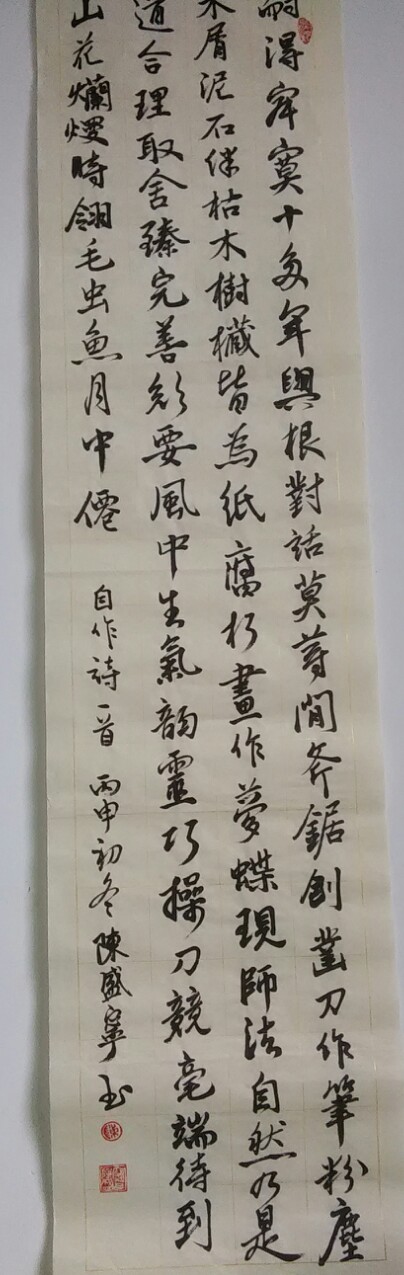 耐得寂寞十多年與根對話莫等閒斧鋸刨鑿刀作筆粉塵
木屑泥石伴枯木樹樁皆為紙腐朽畫作夢蝶現師法自然乃是
道合理取舍臻完善須要風中生氣韵靈巧操刀競毫端待到
山花爛熳時翎毛虫魚月中僊
自作詩一首 丙申初冬 陳盛寧